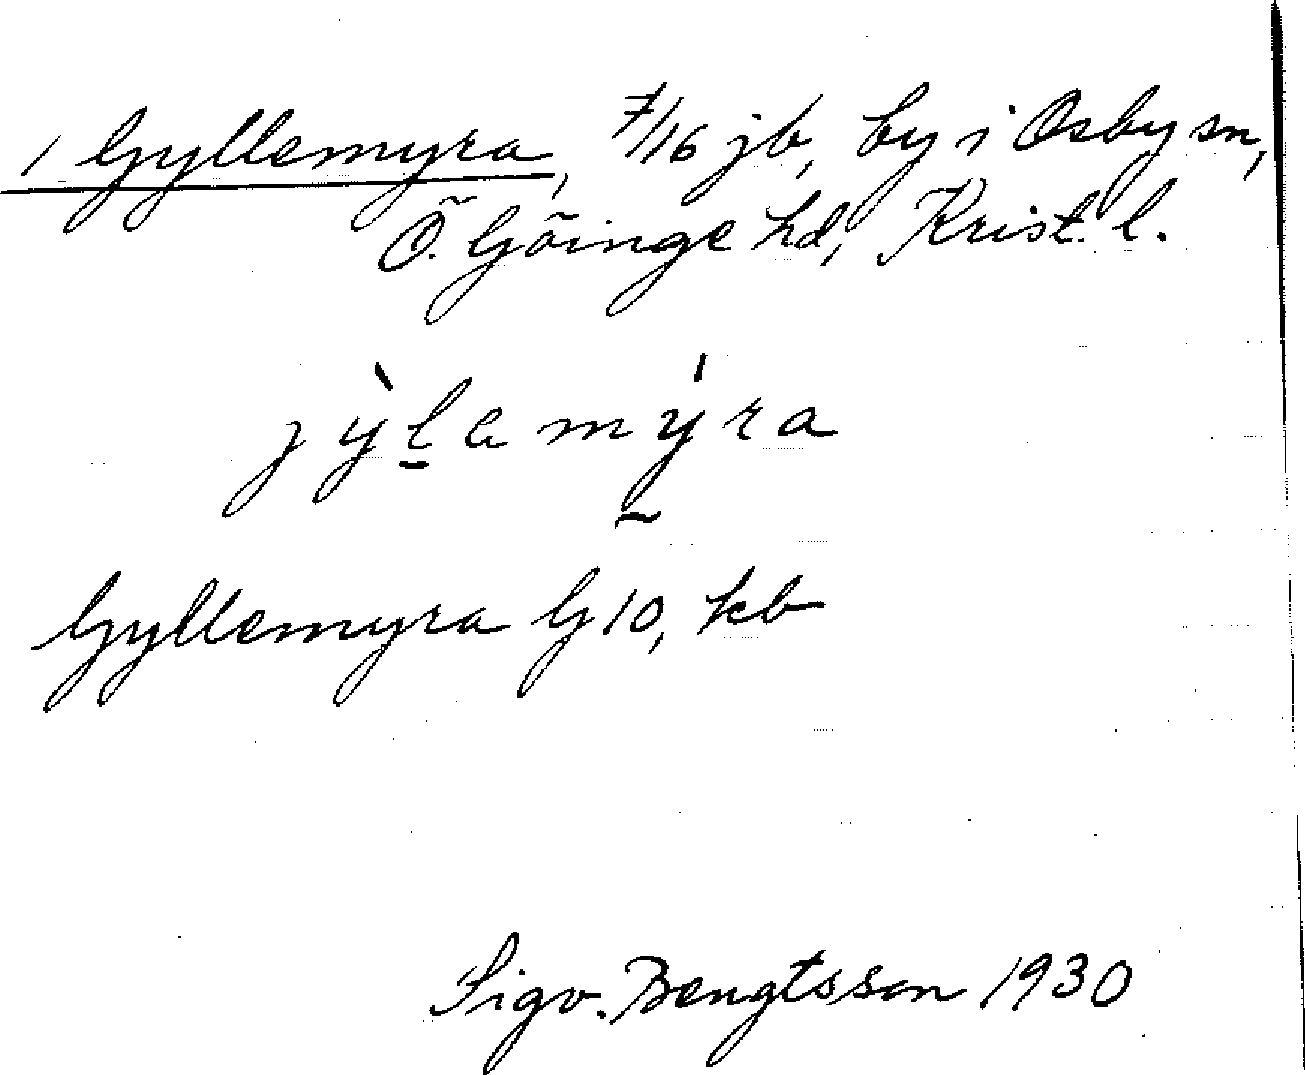 1 Gyllemyra, 7/16 jb, by i Osby sn,
Ö. Göinge hd, Krist. l.
jỳlamýra
Gyllemyra G10, kb
Sigv. Bengtsson 1930